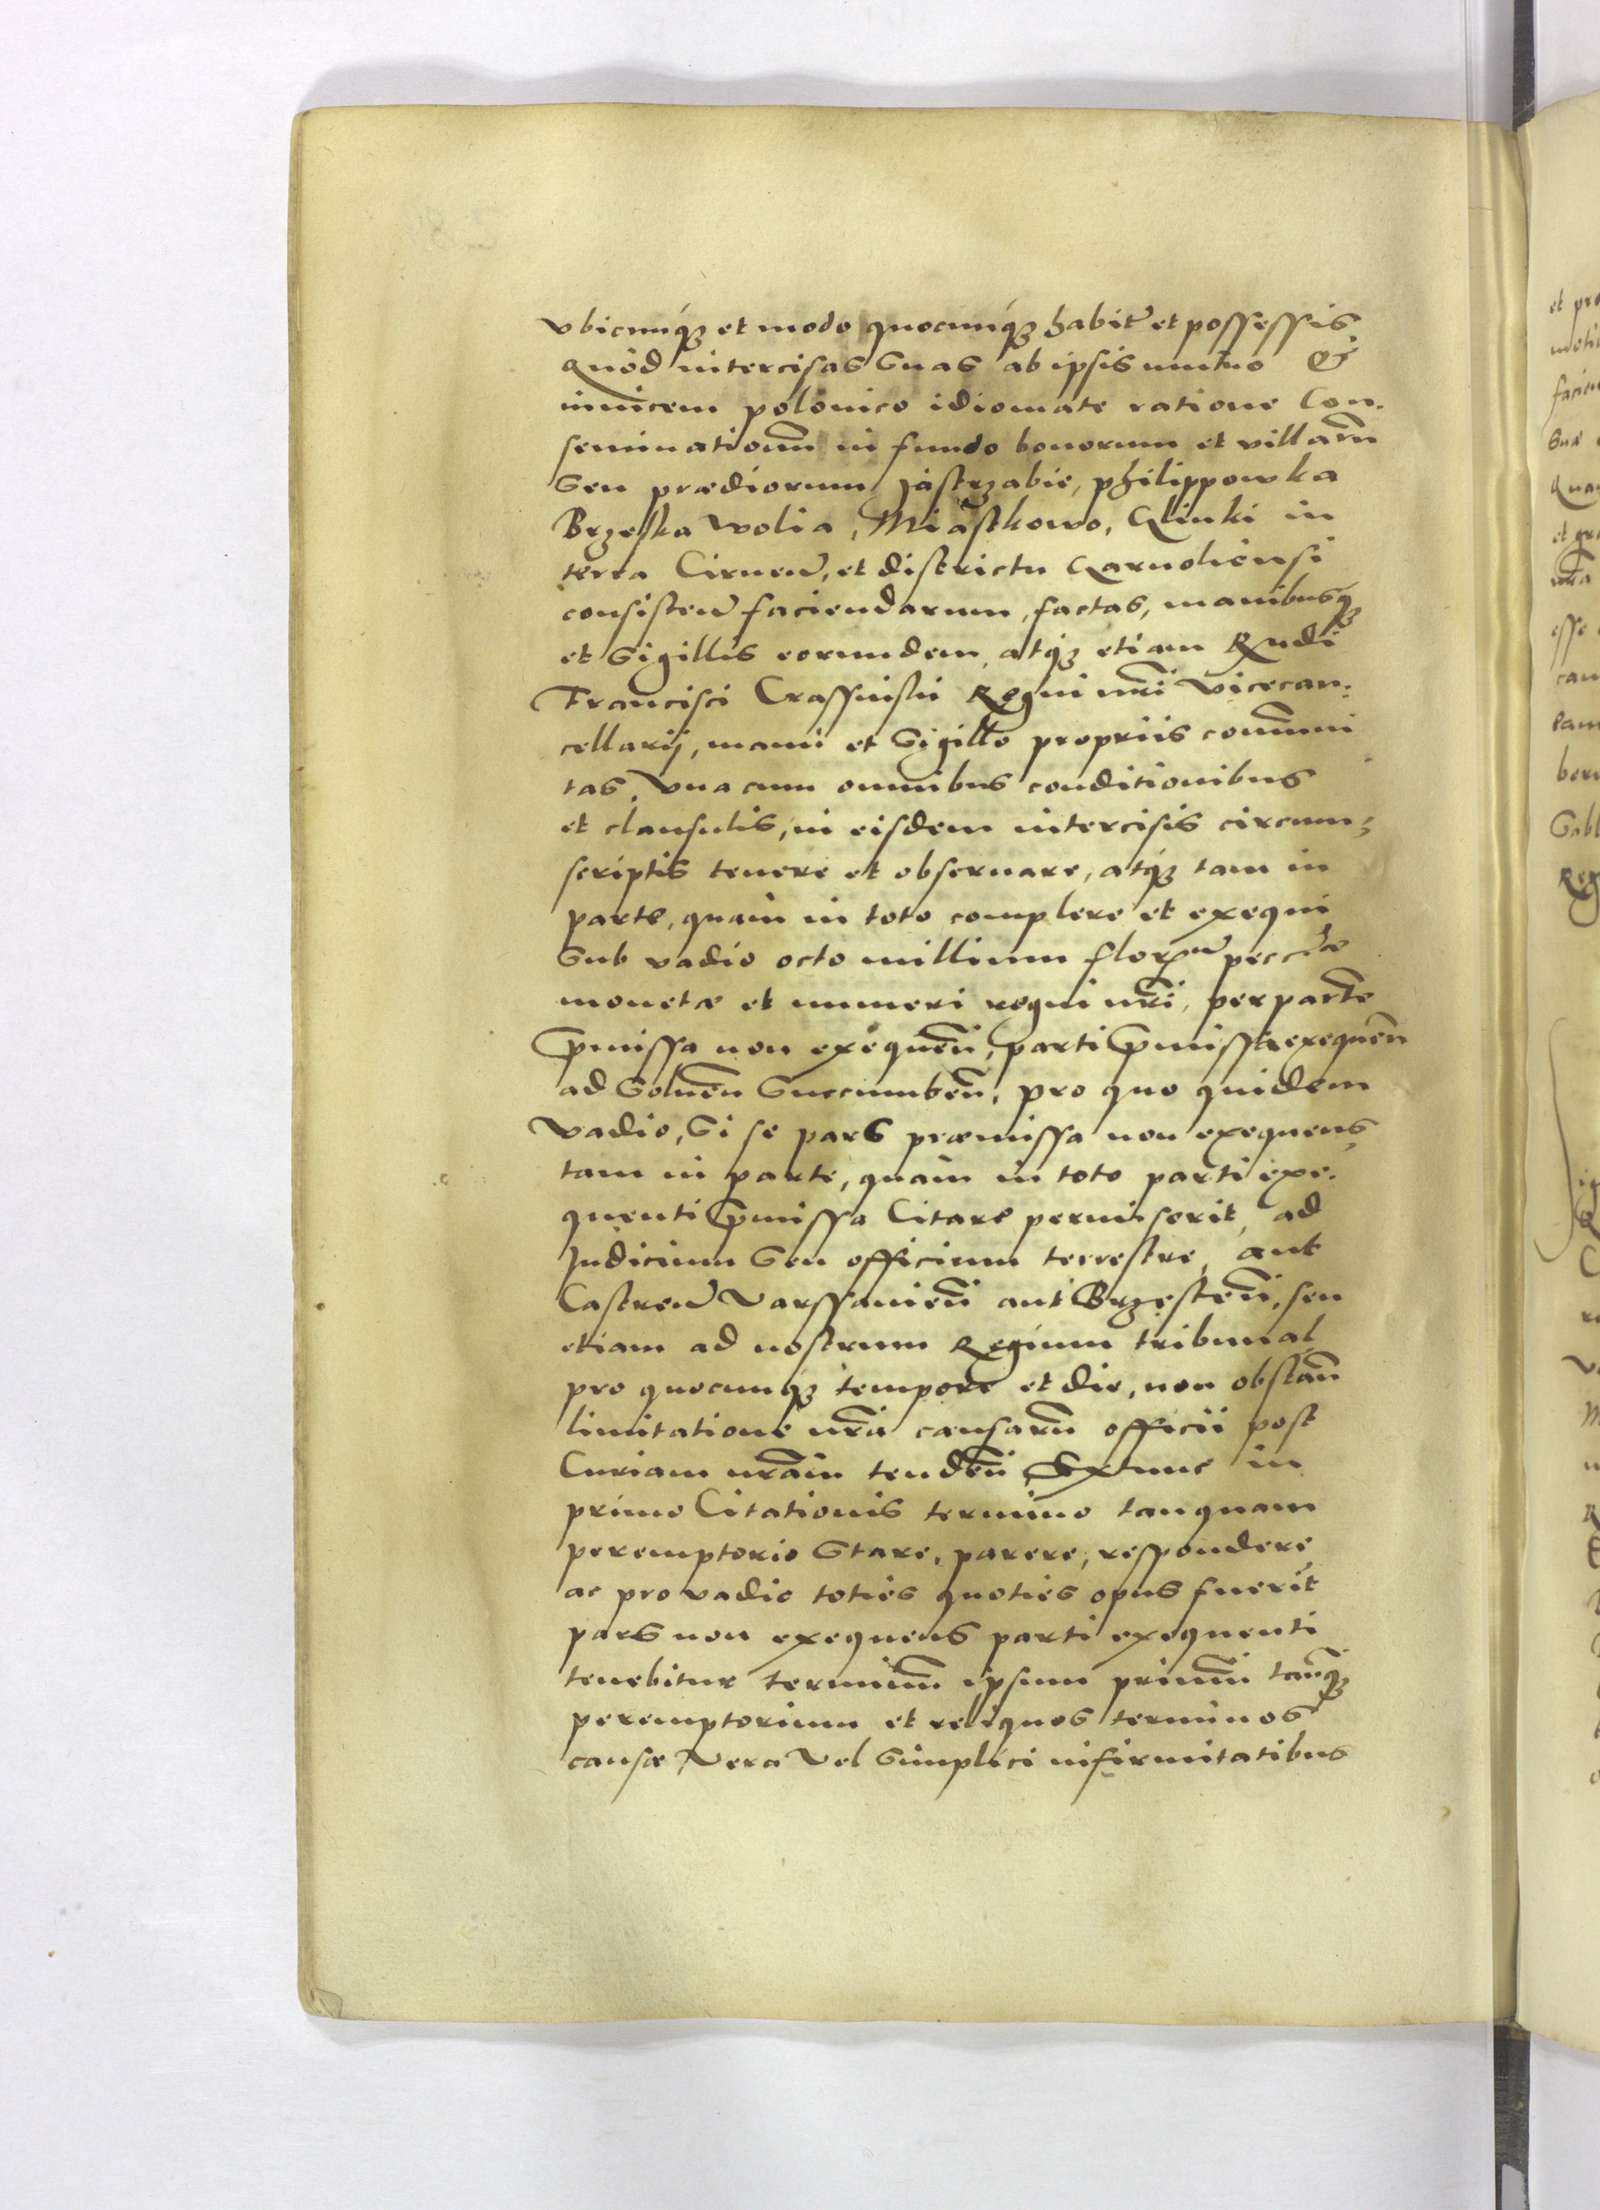 vbicunq₃ et modo quocunq₃ habit͂ et possessis
Quòd intercisas suas ab ipsis mutuo &
inuicem polonico idiomate ratione Con-
seminationũ in fundo bonorum et villarũ
seu prædiorum Jastrzabie, philippowka
Brzeska wolia, Miastkowo, Glinki in
terra Cirnen̄, et districtu Garuoliensi
consisten̄ faciendarum, factas, manibusq₃
et sigillis eorundem, atq₃ etiam Rn̄di
Francisci Crassinsii Regni nr̄i vicecan-
cellarij, manu et sigillo propriis com̄uni
tas, vna cum omnibus conditionibus
et clausulis, in eisdem intercisis circum-
scriptis tenere et obseruare, atq₃ tam in
parte, quam in toto complere et exequi
sub vadio octo millium flor. pecuniæ
monetæ et numeri regni nr̄i, per parte
p̄missa non exequen̄, parti p̄missa exequen̄
ad soluen̄ succumben̄, pro quo quidem
vadio, si se pars præmissa non exequens,
tam in parte, quam in toto parti exe-
quenti p̄missa Citare permiserit, ad
Judicium seu officium terrestre, aut
Castren̄ varssauien̄ aut Brzesten̄, seu
etiam ad nostrum Regium tribunal
pro quocunq₃ tempore et die, non obstan̄
limitatione nr̄a causarũ officii post
Curiam nr̄am tenden̄ Extunc in
primo Citationis termino tanquam
peremptorio stare, parere, respondere
ac pro vadio toties quoties opus fuerit
pars non exequens parti exequenti
tenebitur terminũ ipsum primũ tanq₃
peremptorium et reliquos terminos
causæ, vera vel simplici infirmitatibus